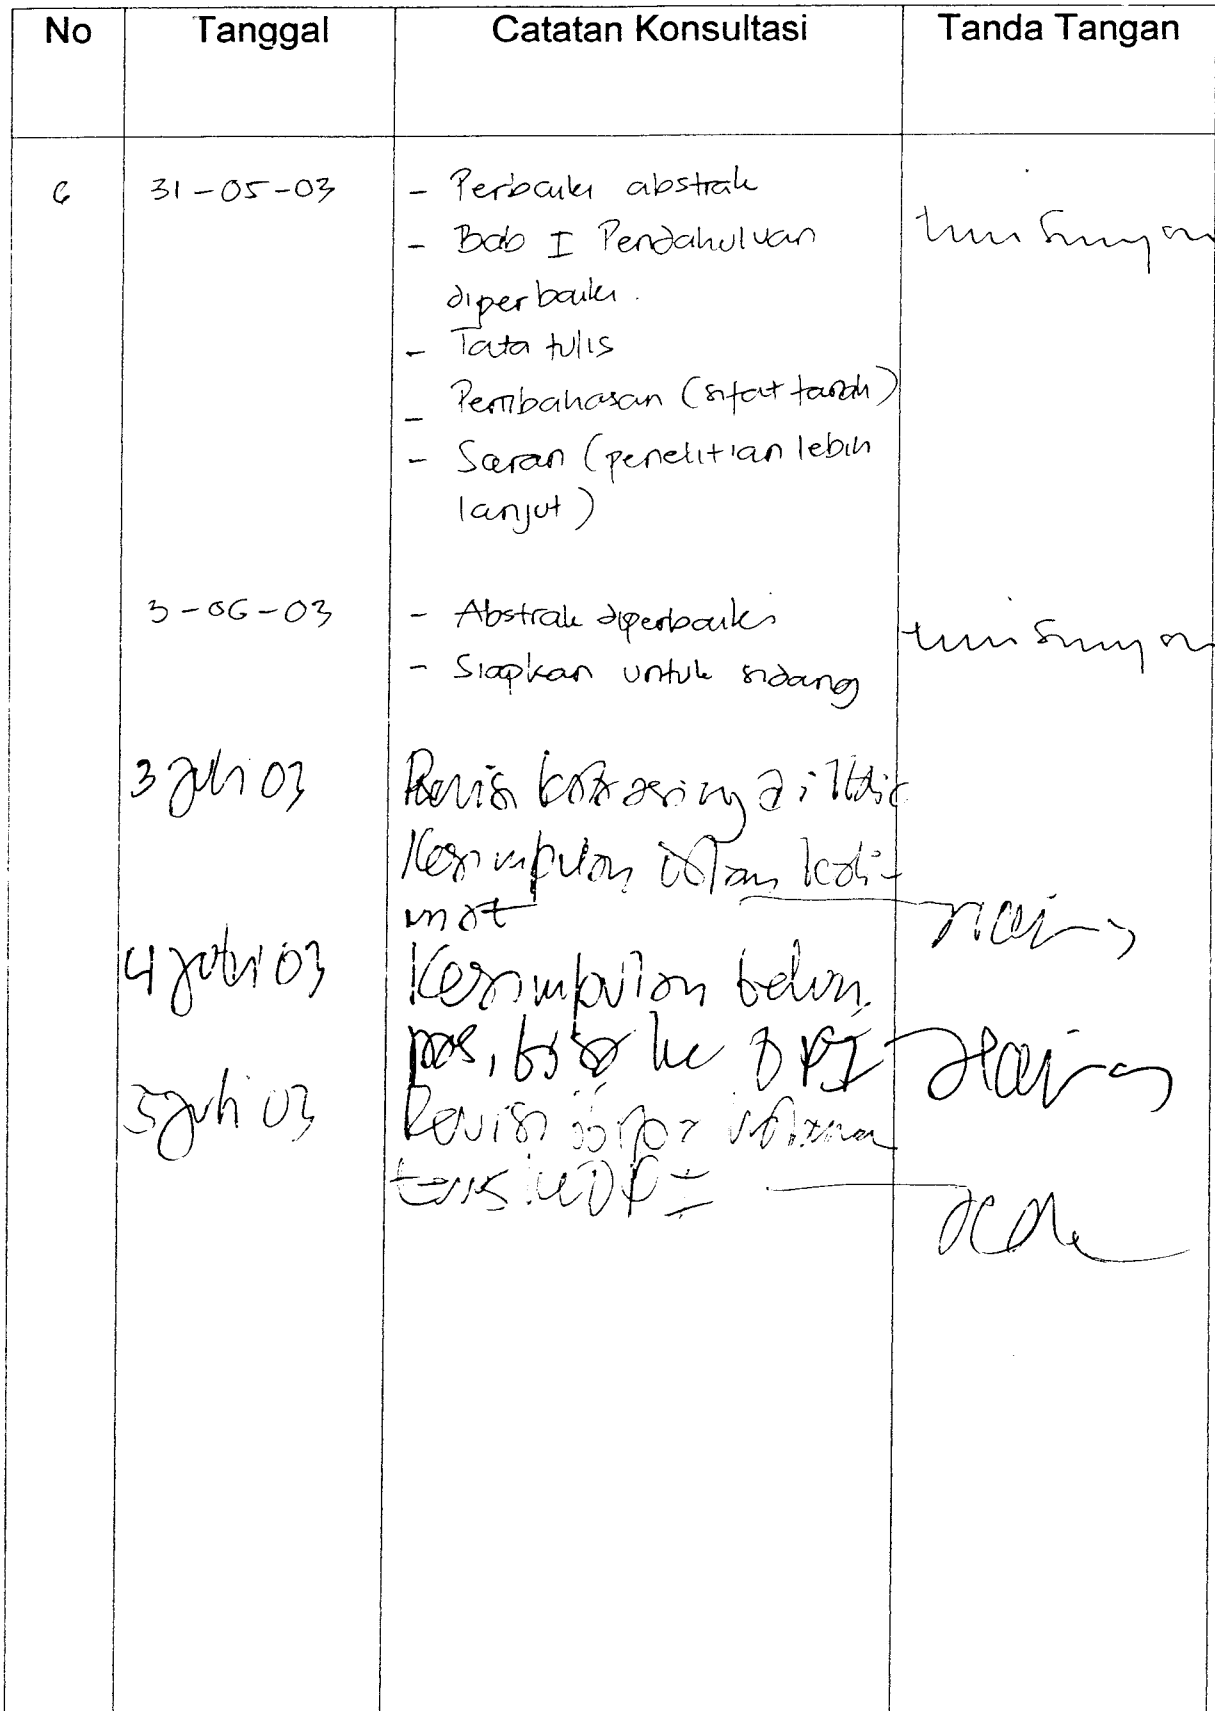 No Tanggal Catatan Konsultasi Tanda Tangan
6 31-05-03 - Perbaiki abstrak
- Bab I Pendahuluan
diperbaiki.
- Tata tulis
- Pembahasan (sifat tanah)
- Saran (penelitian lebih
lanjut)
3-06-03 - Abstrak diperbaiki
- Siapkan untuk sidang
3 Juli 03 Revisi kata asing di
Kesimpulan kali-
mat
4 Juli 03 Kesimpulan belum
pas, bisa ke DPI
5 Juli 03 Revisi
terus ke DPI